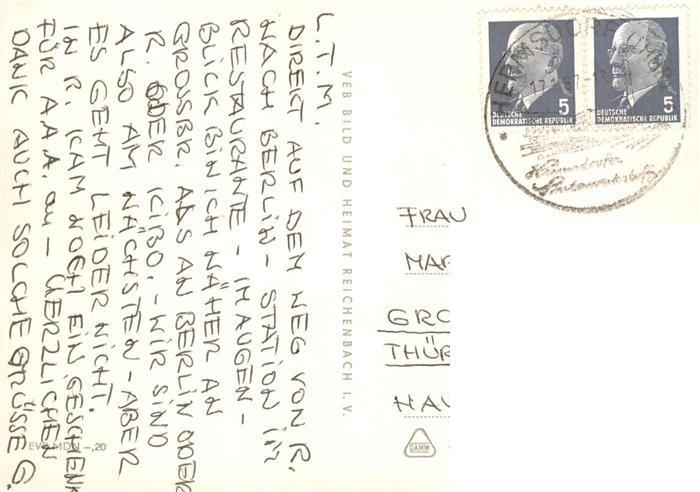 L.T.M.
DIREKT AUF DEM WEG VON R.
NACH BERLIN - STATION IM
RESTAURANTE - IM AUGEN-
BLICK BIN ICH NÄHER AN
GROSBR. ALS AN BERLIN ODER
R. ODER KIBO. - WIR SIND
ALSO AM NÄCHSTEN - ABER
ES GEHT LEIDER NICHT.
IN R. KAM NOCH EIN GESCHENK
FÜR A.A.A. an - HERZLICHEN
DANK AUCH SOLCHE GRÜSSE G.
EVP MDN -,20
VEB BILD UND HEIMAT REICHENBACH I. V.
DEUTSCHE
DEMOKRATISCHE REPUBLIK
5
DEUTSCHE
DEMOKRATISCHE REPUBLIK
5
HERMSDORF (THÜR)
Hermsdorfer
FRAU
MAR
GRO
THÜR
HAU
DAMW